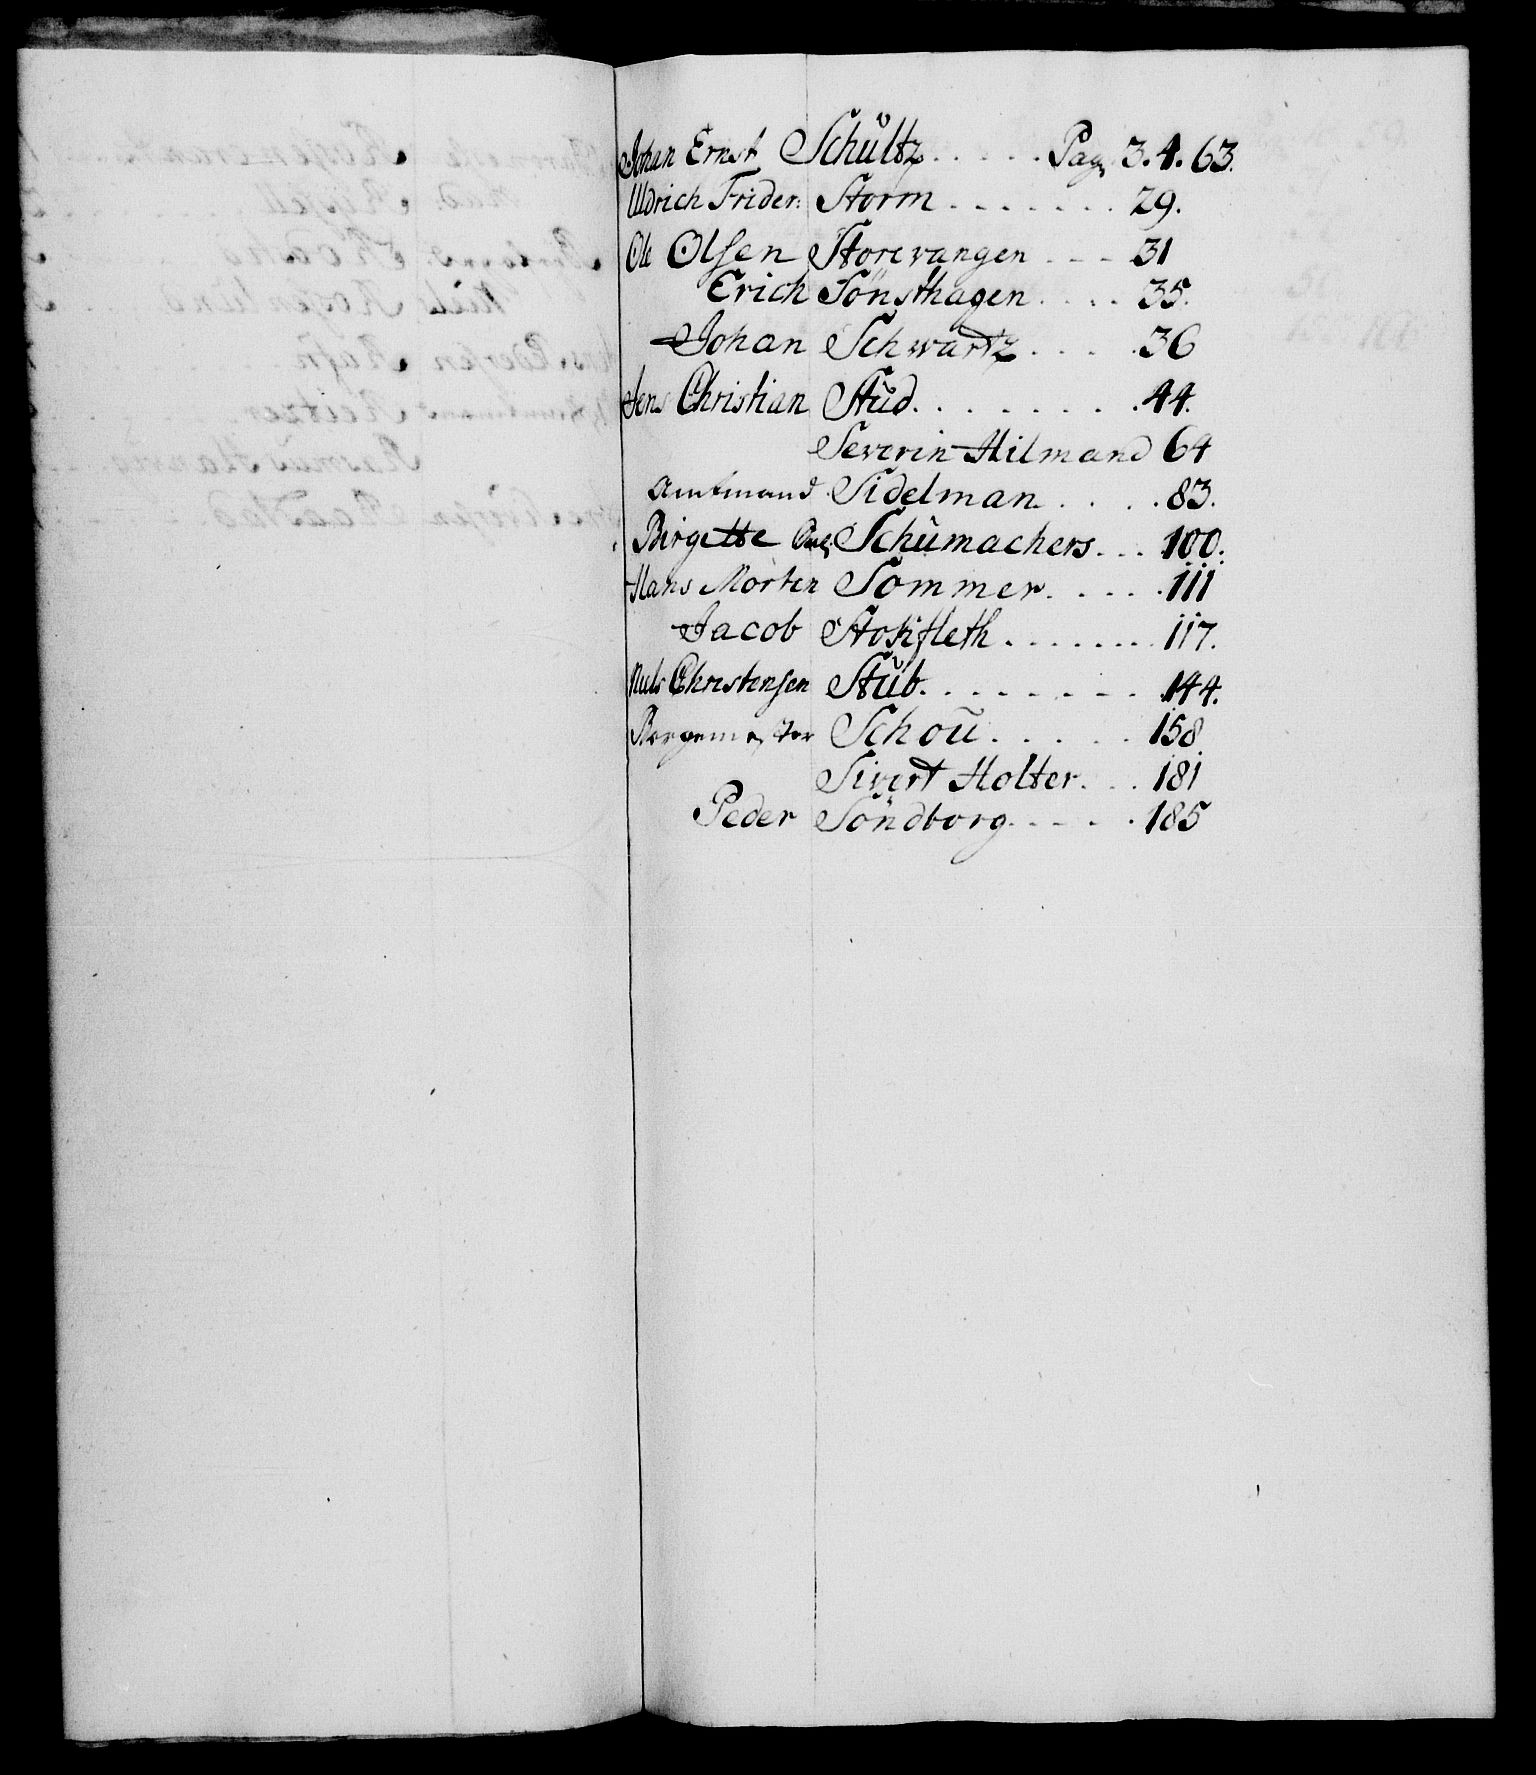 Johan Ernst Schültz . . . . . Pag. 3. 4. 63.
Uldrich Frider: Storm . . . . . . . 29.
Ole Olsen Storevangen . . . 31
Erich Sönsthagen . . . . 35.
Johan Schwartz . . . . . 36
Jens Christian Stüd . . . . . . . . . 44.
Severin Hilmand 64
Amtmand Sidelman . . . . . 83.
Birgette Schümachers . . . 100.
Hans Morten Sommer . . . . . 111
Jacob Stokfleth . . . . . . . 117.
Niels Christensen Stüb . . . . . . . . 144.
Borgemester Schoü . . . . . 158
Sivert Holter . . . 181
Peder Söndborg . . . . . 185